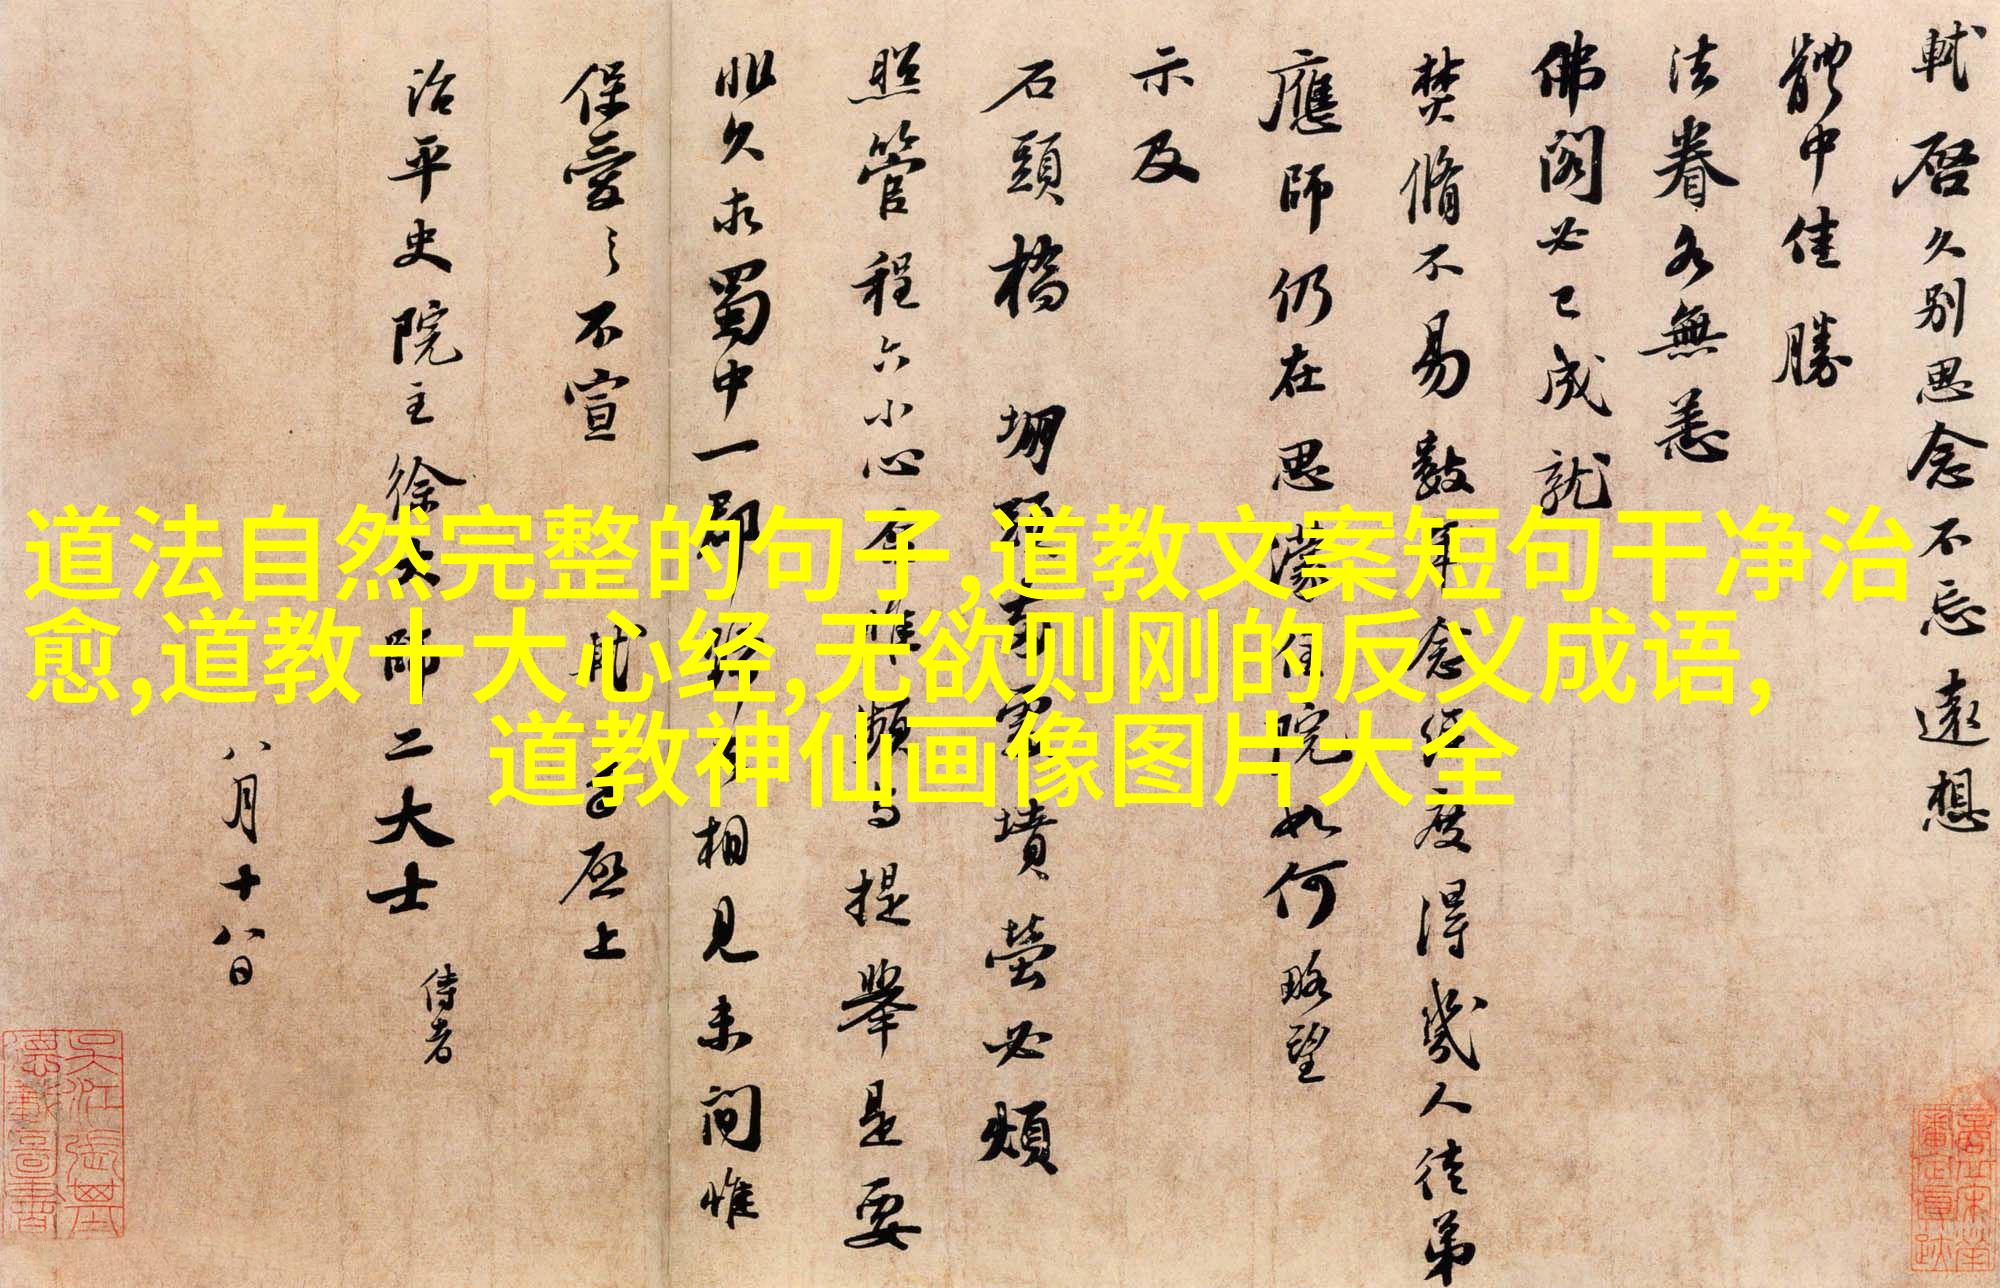 軾啓久别思念不忘遠想
體中佳勝
法眷各無恙
佛閣必已成就
焚脩不易數年念經度得幾人徒弟
應師仍在思濛住院如何略望
示及
石頭橋 堋頭兩處墳塋必煩
照管程六小心否惟頻与提舉是要
非久求蜀中一郡歸去相見未間惟
保愛之不宣 軾手啓上
治平史院主徐大師二大士 侍者
八月十八日
道法自然完整的句子,道教文案短句干净治
愈,道教十大心经,无欲则刚的反义成语,
道教神仙画像图片大全